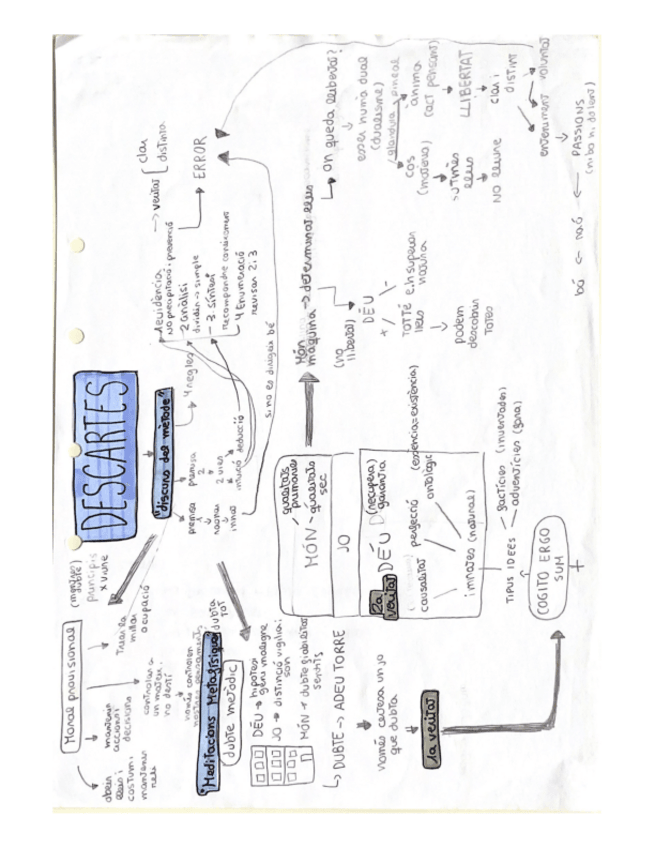 DESCARTES
"discurs del mètode"
4 regles
1 evidència
No precipitació i prevenció
→ veritat
clar
distinta
2 anàlisi
dividir → simple
→ 3. síntesi
recompondre coneixement
4 Enumeració
revisar 2, 3
ERROR
premisa
1
↓
raonar
↓
innat
premisa
2
↓
2 vies
intuició deducció
si no es dirigeix bé
(mentre
dubte)
principis
x viure
Moral provisional
obeir
lleis i
costums,
mantenir
reis
mantenir
accions i
decisions
controlar a
un mateix i
no destí
↓
només controlem
nostres pensaments
Triar la
millor
ocupació
"Meditacions Metafísiques"
dubte metòdic
dubta
tot
DÉU → hipòtesi
geni maligne
JO → distinció vigília i
son
MÓN → dubte fiabilitat
sentits
↳ DUBTE → ADEU TORRE
només certesa un jo
que dubta
la veritat
COGITO ERGO
SUM
+
TIPUS IDEES
factícies (inventades)
adventícies (fora)
innates (naturals)
causalitat
perfecció
ontològic
(essència=existència)
la
veritat
DÉU (recupera)
garantia
JO
MÓN
qualitats
primàries
qualitats
sec
Món
màquina → determinat lleis
(no
llibertat)
DÉU
+ / -
TOT té
lleis
↓
podem
descobrir
totes
é.h superior
màquina
on queda llibertat?
↓
ésser humà dual
(dualisme)
glàndula pineal
cos
(matèria)
↓
sotmès
lleis
↓
NO lliure
ànima
(act pensant)
↓
LLIBERTAT
↓
clar i
distint
enteniment voluntat
↓
PASSIONS
(ni bo ni dolent)
bé ← raó ←